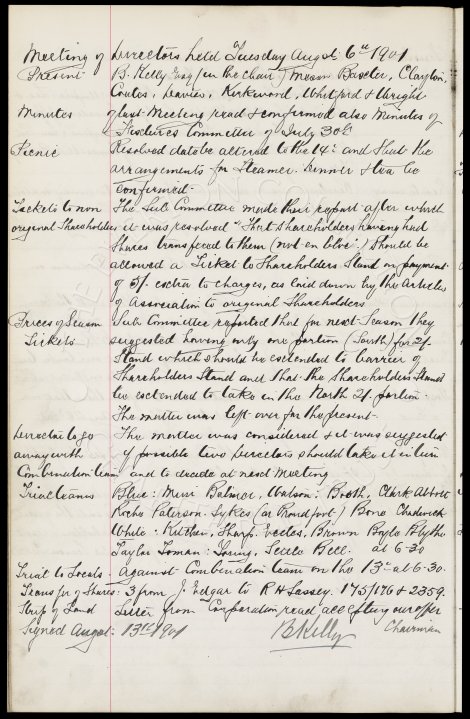 Meeting of Directors held Tuesday Augst. 6th 1901
Present B. Kelly Esq (in the chair) Messrs Baxter, Clayton,
Coates, Davies, Kirkwood, Whitford & Wright
Minutes of last Meeting read & confirmed also Minutes of
Fixtures Committee of July 30th
Picnic Resolved date be altered to the 14th and that the
arrangements for Steamer dinner & tea be
confirmed.
Tickets to non The Sub Committee made their report after which
original Shareholders it was resolved "That Shareholders having had
Shares transferred to them (not en bloc) should be
allowed a Ticket to Shareholders Stand on payment
of 5/- extra to charges, as laid down by the Articles
of Association to original Shareholders
Prices of Season Sub Committee reported that for next Season they
Tickets suggested having only one portion (South) for 21/-
Stand which should be extended to barrier of
Shareholders Stand and that the Shareholders Stand
be extended to take in the North 21/- portion.
The matter was left over for the present.
Director to go The matter was considered & it was suggested
away with if possible two Directors should take it in turn
Combination team and to decide at next meeting
Trial teams Blue: Muir Balmer, Watson: Booth, Clark Abbott
Roche Paterson Sykes (or Proudfoot) Bone Chadwick
White: Kitchen, Sharp, Eccles, Brown Boyle Blythe
Taylor Toman: Young, Settle Bell. at 6-30
Trial to Locals - Against Combination team on the 13th at 6-30.
Transfer of Shares: 3 from J. Edgar to R H Sassey. 175/176 & 2359.
Strip of Land Letter from Corporation read accepting our offer
Signed Augst: 13th 1901 B Kelly Chairman